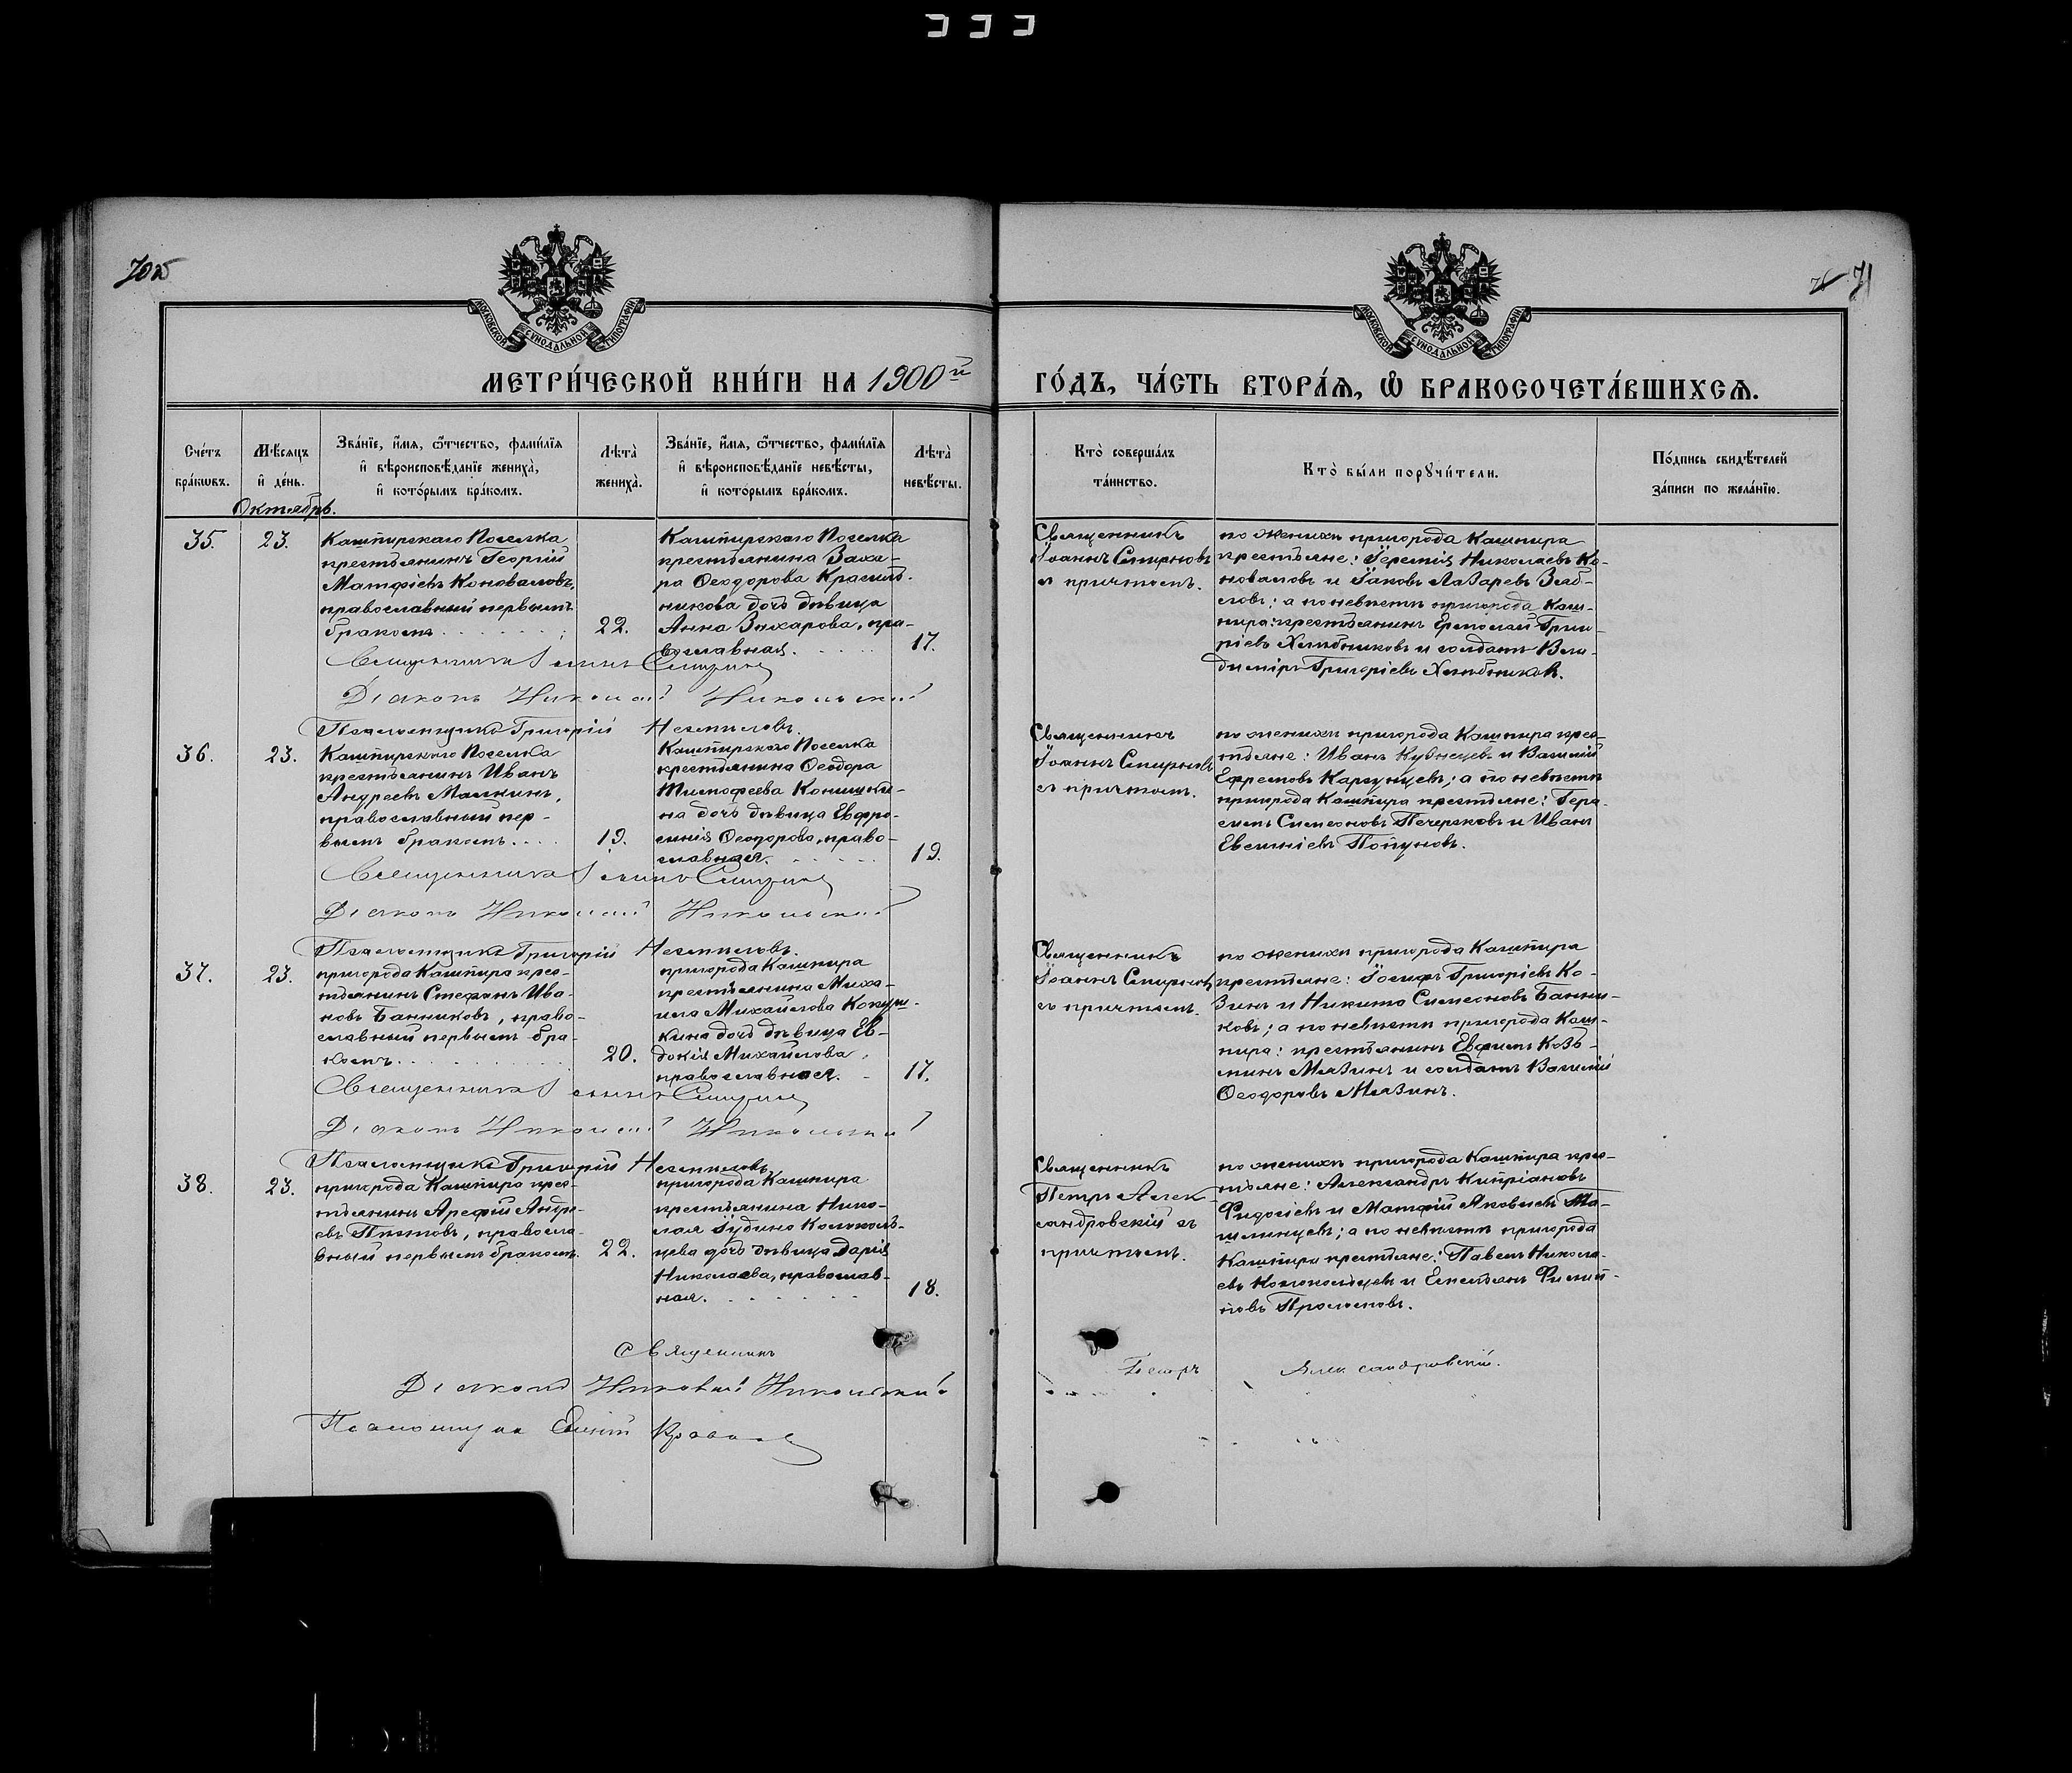 70об
71
МОСКОВСКОЙ СУНОДАЛЬНОЙ ТИПОГРАФІИ
МОСКОВСКОЙ СУНОДАЛЬНОЙ ТИПОГРАФІИ
МЕТРИ́ЧЕСКОЙ КНИ́ГИ НА 1900й
ГО́ДЪ, ЧА́СТЬ ВТОРА́Ѧ, Ѽ БРАКОСОЧЕТА́ВШИХСѦ.
Сче́тъ
бра́кѡвъ.
Мѣ́сѧцъ
и҆ де́нь.
Октябрь.
Зва́нїе, и҆́мѧ, ѻ҆́тчество, фами́лїѧ
и҆ вѣроисповѣ́данїе жениха̀,
и҆ кото́рымъ бра́комъ.
Лѣ́та̀
жениха̀.
Зва́нїе, и҆́мѧ, ѻ҆́тчество, фами́лїѧ
и҆ вѣроисповѣ́данїе невѣ́сты,
и҆ кото́рымъ бра́комъ.
Лѣ́та̀
невѣ́сты.
Кто̀ соверша́лъ
та́инство.
Кто̀ бы́ли порꙋчи́тели.
По́дпись свидѣ́телей
за́писи по жела́нїю.
35.
23.
Кашпирскаго Поселка
крестьянинъ Георгій
Матѳіевъ Коноваловъ,
православный первымъ
бракомъ
22.
Кашпирскаго Поселка
крестьянина Заха-
ра Ѳеодорова Красиль-
никова дочь дѣвица
Анна Захарова, пра-
вославная.
17.
Священникъ
Іоаннъ Смирновъ
съ причтомъ.
по женихѣ пригорода Кашпира
крестьяне: Іеремія Николаевъ Ко-
новаловъ и Іаковъ Лазаревъ
а по невѣстѣ пригорода Каш-
пира: крестьянинъ Ермолай Григо-
ріевъ Хлѣбниковъ и солдатъ Вла-
диміръ Григоріевъ Хлѣбниковъ.
Священникъ Іоаннъ Смирновъ
Діаконъ Николай Никольскій
Псаломщикъ Григорій
36.
23.
Кашпирскаго Поселка
крестьянинъ Иванъ
Андреевъ Малкинъ,
православный пер-
вымъ бракомъ.
19.
Кашпирскаго Поселка
крестьянина Ѳеодора
Тимоѳеева
на дочь дѣвица Евфро-
синія Ѳеодорова, право-
славная.
19.
Священникъ
Іоаннъ Смирновъ
съ причтомъ.
по женихѣ пригорода Кашпира крес-
тьяне: Иванъ и Василій
Ефремовъ Карпунцевъ; а по невѣстѣ
пригорода Кашпира крестьяне: Гера-
симъ Симеоновъ Печерсковъ и Иванъ
Евсиніевъ
Священникъ Іоаннъ Смирновъ
Діаконъ Николай Никольскій
Псаломщикъ Григорій
37.
23.
пригорода Кашпира крес-
тьянинъ Стефанъ Ива-
новъ Банниковъ, право-
славный первымъ бра-
комъ.
20.
пригорода Кашпира
крестьянина Миха-
ила Михайлова
кина дочь дѣвица Ев-
докія Михайлова,
православная.
17.
Священникъ
Іоаннъ Смирновъ
съ причтомъ.
по женихѣ пригорода Кашпира
крестьяне: Іосифъ Григоріевъ Ко-
зинъ и Никита Симеоновъ Банни-
ковъ; а по невѣстѣ пригорода Каш-
пира: крестьянинъ Евфимъ Козь-
минъ Мязинъ и солдатъ Василій
Ѳеодоровъ Мязинъ.
Священникъ Іоаннъ Смирновъ
Діаконъ Николай Никольскій
Псаломщикъ Григорій
38.
23.
пригорода Кашпира крес-
тьянинъ Арефій Андре-
евъ православ-
ный первымъ бракомъ.
22.
пригорода Кашпира
крестьянина Нико-
лая Іудина Колоколь-
цева дочь дѣвица Дарія
Николаева, православ-
ная.
18.
Священникъ
Петръ Алек-
сандровскій съ
причтомъ.
по женихѣ пригорода Кашпира крес-
тьяне: Александръ Кипріановъ
и Матѳій Яковлевъ Та-
шлинцевъ; а по невѣстѣ пригорода
Кашпира крестьяне: Павелъ Никола-
евъ Колокольцевъ и Емельянъ Филип-
повъ
Священникъ Петръ Александровскій.
Діаконъ Николай Никольскій
Псаломщикъ